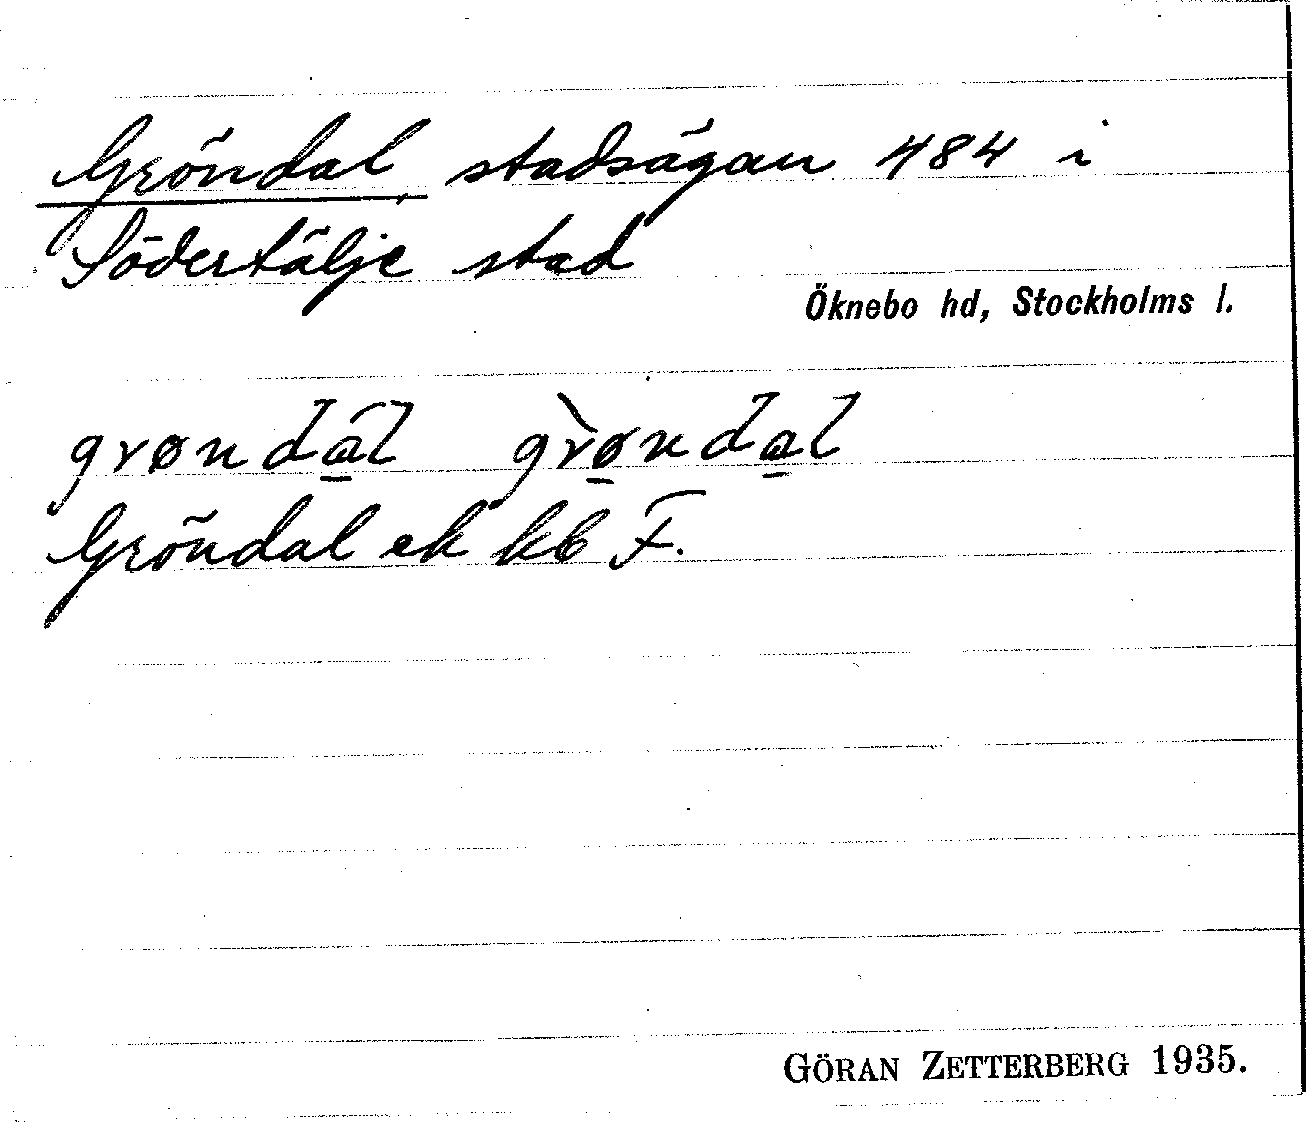 Gröndal, stadsägan 484 i
Södertälje stad
Öknebo hd, Stockholms l.
grøndá̱l grø̱̀nda̱l
Gröndal ek kb F.
GÖRAN ZETTERBERG 1935.